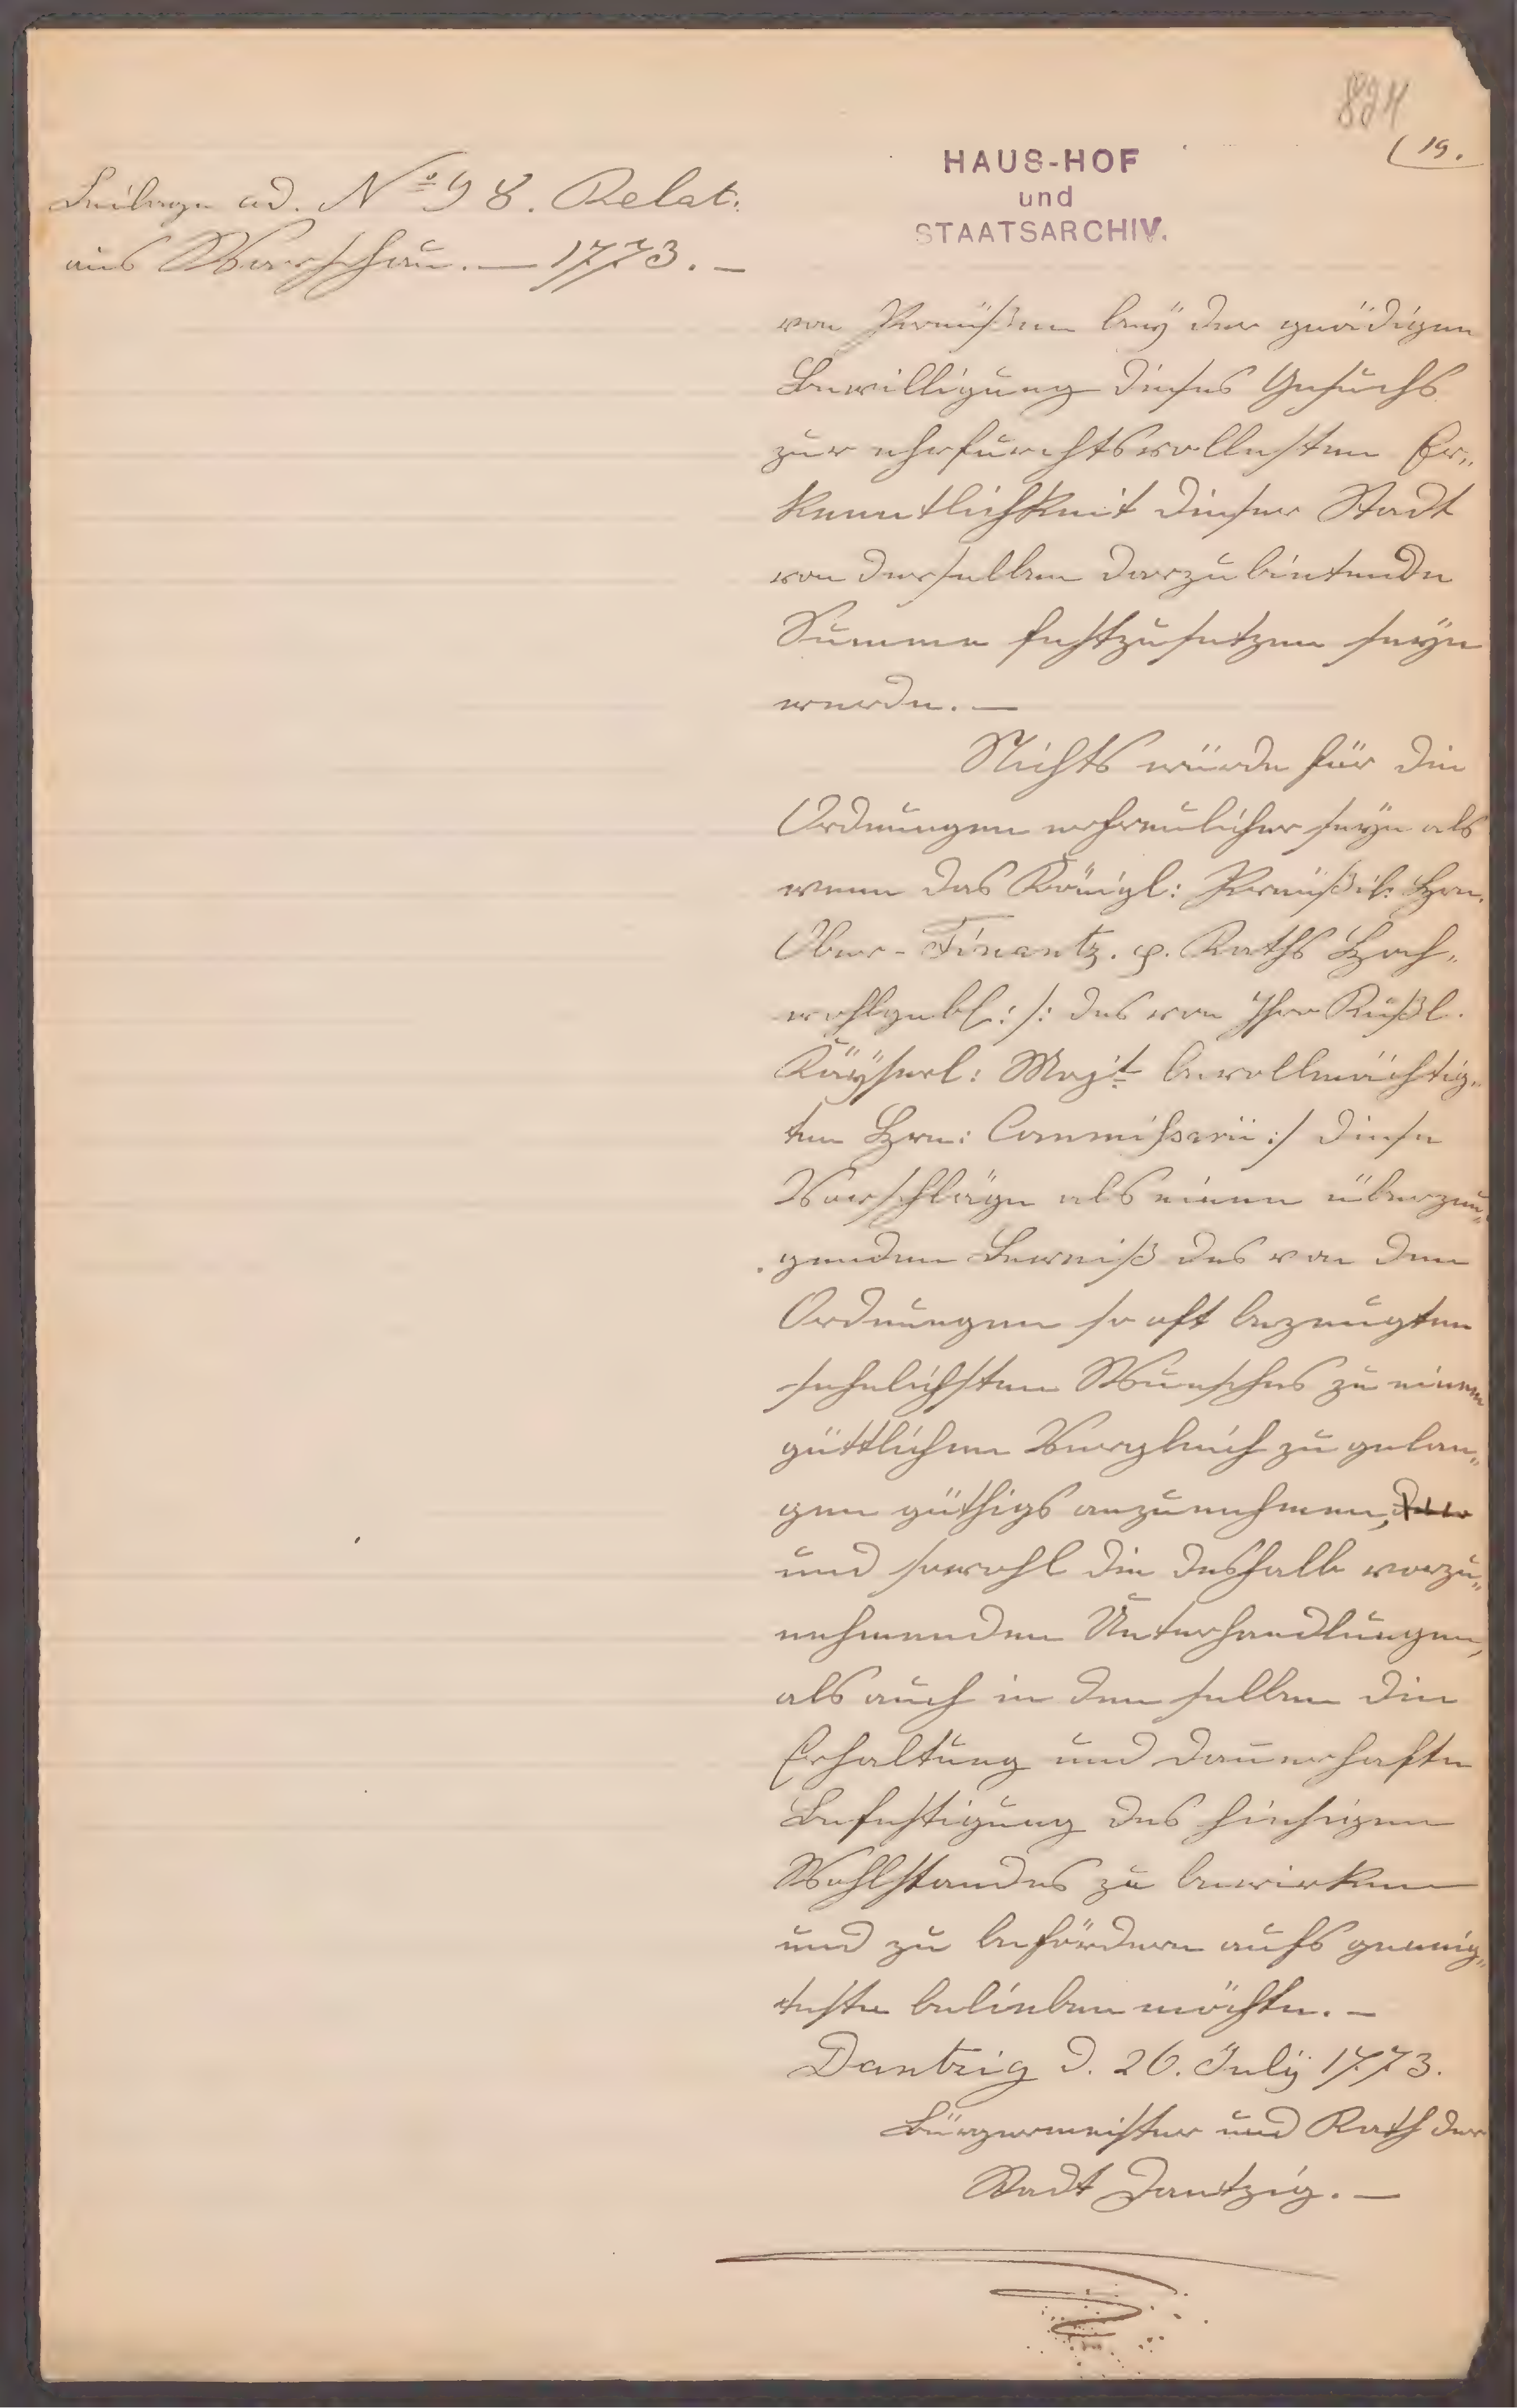 824
19.
HAUS-HOF
und
STAATSARCHIV.
Beilage ad. Nº 98. Relat:
aus Warschau. — 1773. —
von Preüßen beÿ der gnädigen
Bewilligung dieses Gesuchs
zur ehrfurchtsvollesten Er„
kenntlichkeit dieser Stadt
von derselben darzubietende
Summe festzusetzen seÿn
werde. —
Nichts würde für die
Ordnungen erfreulicher seÿn als
wenn das Königl: Preüßil: Hrn.
Ober-Finantz. p. Raths Hoch„
wohlgebl: /: des von Ihro Rußl.
Kaÿserl: Majt bevollmächtig„
ten Hrn: Commißarii :/ diese
Vorschläge als einen überzeu„
genden Beweiß des von den
Ordnungen so oft bezeugten
sehnlichsten Wunsches zu einem
güttlichen Vergleich zu gelan„
gen güthigs anzunehmen,
und sowohl die deshalb vorzu„
nehmenden Unterhandlungen,
als auch in den selben die
Erhaltung und dauerhafte
Befestigung des hiesigen
Wohlstandes zu bewirken
und zu befördern aufs geneig„
teste belieben möchte. —
Dantzig d. 26. Julÿ 1773.
Bürgermeister und Rath der
Stadt Dantzig. —